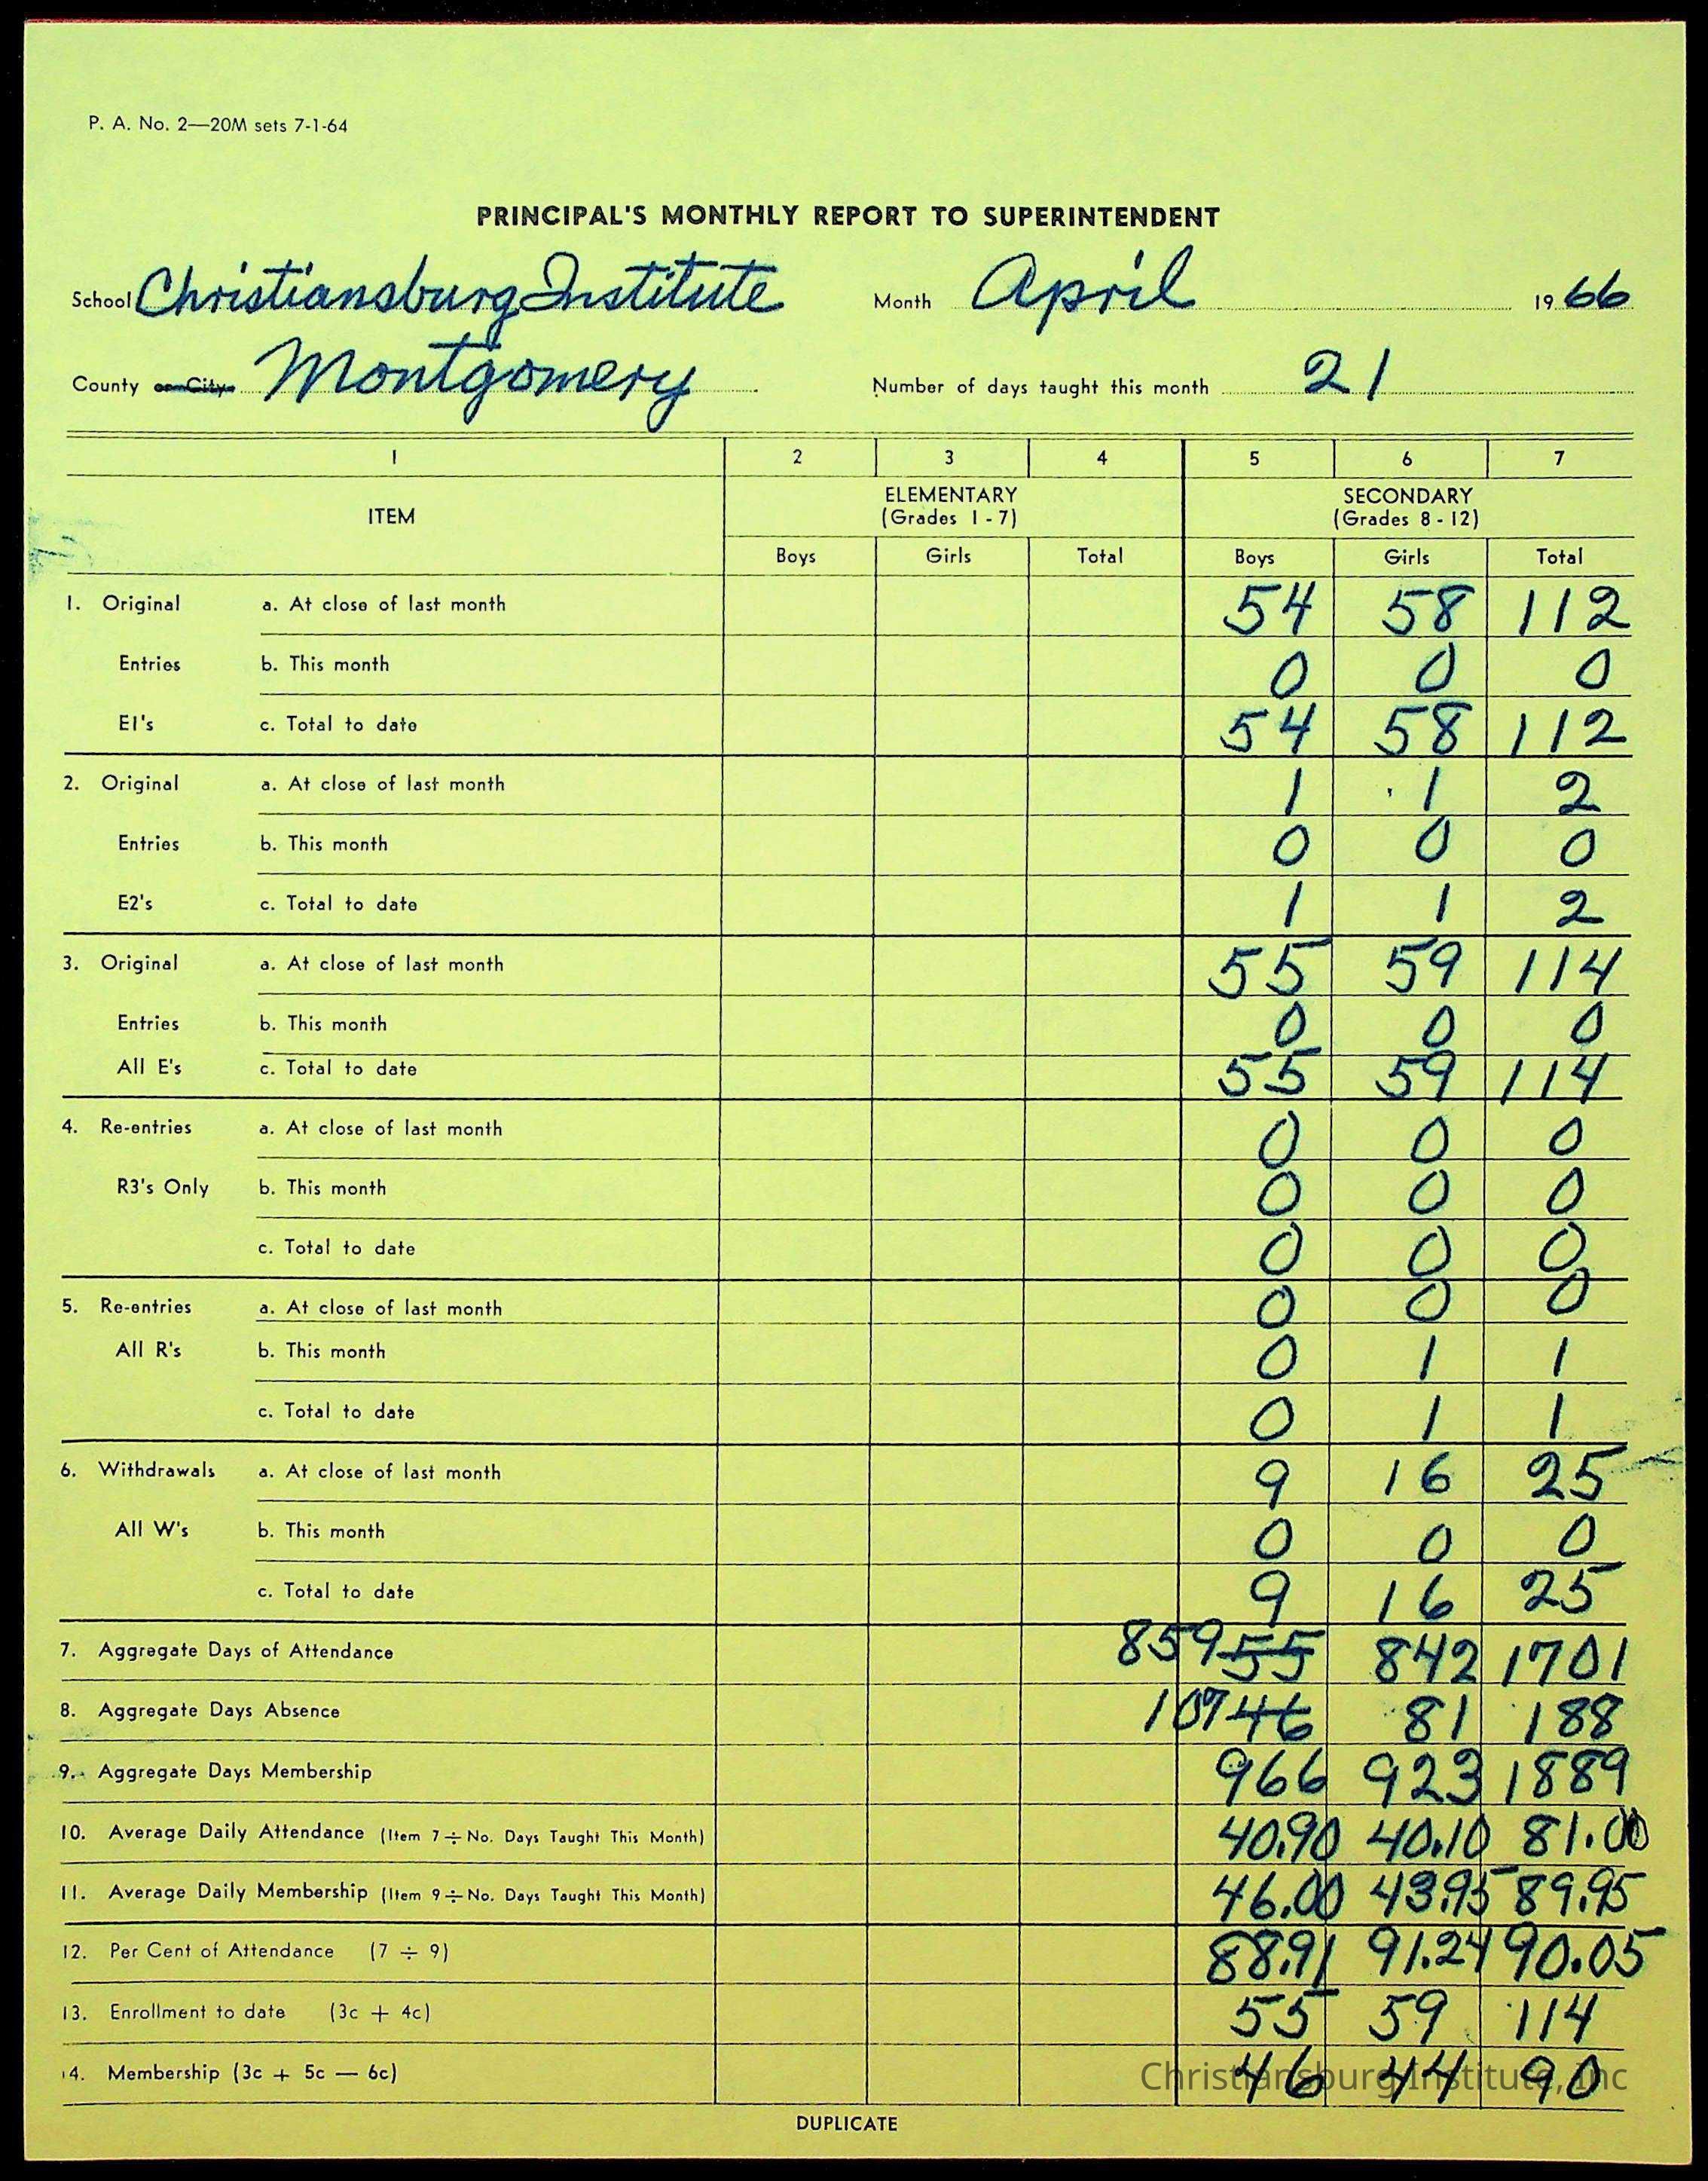 P. A. No. 2—20M sets 7-1-64
PRINCIPAL'S MONTHLY REPORT TO SUPERINTENDENT
School Christiansburg Institute Month April 19 66
County or City Montgomery Number of days taught this month 21
1 2 3 4 5 6 7
ITEM ELEMENTARY (Grades 1 - 7) SECONDARY (Grades 8 - 12)
Boys Girls Total Boys Girls Total
1. Original a. At close of last month 54 58 112
Entries b. This month 0 0 0
E1's c. Total to date 54 58 112
2. Original a. At close of last month 1 1 2
Entries b. This month 0 0 0
E2's c. Total to date 1 1 2
3. Original a. At close of last month 55 59 114
Entries b. This month 0 0 0
All E's c. Total to date 55 59 114
4. Re-entries a. At close of last month 0 0 0
R3's Only b. This month 0 0 0
c. Total to date 0 0 0
5. Re-entries a. At close of last month 0 0 0
All R's b. This month 0 1 1
c. Total to date 0 1 1
6. Withdrawals a. At close of last month 9 16 25
All W's b. This month 0 0 0
c. Total to date 9 16 25
7. Aggregate Days of Attendance 859 55 842 1701
8. Aggregate Days Absence 107 46 81 188
9. Aggregate Days Membership 966 923 1889
10. Average Daily Attendance (Item 7 ÷ No. Days Taught This Month) 40.90 40.10 81.00
11. Average Daily Membership (Item 9 ÷ No. Days Taught This Month) 46.00 43.95 89.95
12. Per Cent of Attendance (7 ÷ 9) 88.91 91.24 90.05
13. Enrollment to date (3c + 4c) 55 59 114
14. Membership (3c + 5c — 6c) 46 44 90
Christiansburg Institute, Inc
DUPLICATE